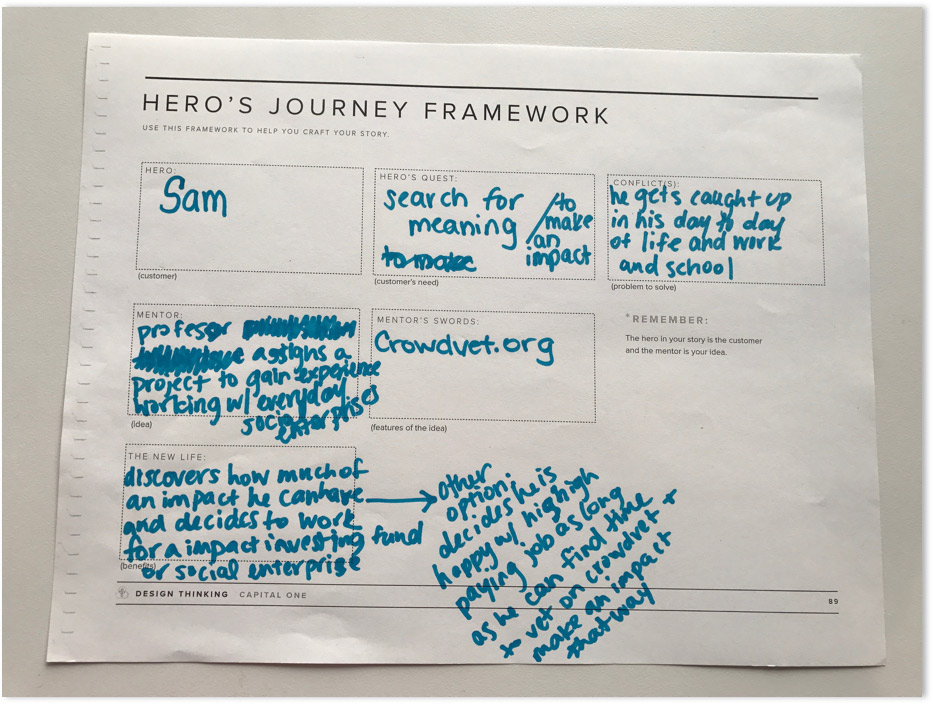 HERO'S JOURNEY FRAMEWORK
USE THIS FRAMEWORK TO HELP YOU CRAFT YOUR STORY.
HERO:
Sam
(customer)
HERO'S QUEST:
search for
meaning
to make
/to
make
an
impact
(customer's need)
CONFLICT(S):
he gets caught up
in his day to day
of life and work
and school
(problem to solve)
MENTOR:
profesor
assigns a
project to gain experience
working w/ everyday
social
enterprises
(idea)
MENTOR'S SWORDS:
Crowdvet.org
(features of the idea)
*REMEMBER:
The hero in your story is the customer
and the mentor is your idea.
THE NEW LIFE:
discovers how much of
an impact he can have
and decides to work
for a impact investing fund
or social enterprise
(benefits)
other
option:
decides he is
happy w/ high high
paying job as long
as he can find time
to vet on crowdvet +
make an impact
that way
DESIGN THINKING CAPITAL ONE
89